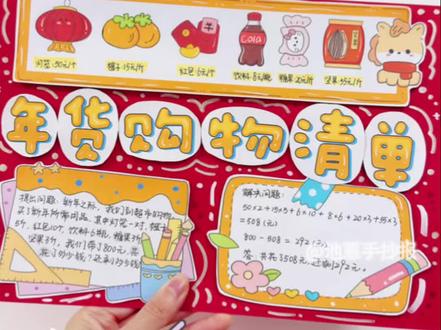 Cola
灯笼:50元/个
橘子:15元/斤
红包:6元/个
饮料:8元/瓶
糖果:20元/斤
坚果:35元/斤
年货购物清单
提出问题:新年之际,我们到超市购物
买了新年所需用品,其中灯笼一对,橘子
5斤,红包10个,饮料6瓶,糖果3斤
坚果3斤,我们带了800元,共
花了多少钱?还剩多少钱
解决问题:
50×2+15×5+6×10+8×6+20×3+55×3
=508(元)
800-508=292(元)
答:共花了508元,还剩292元。